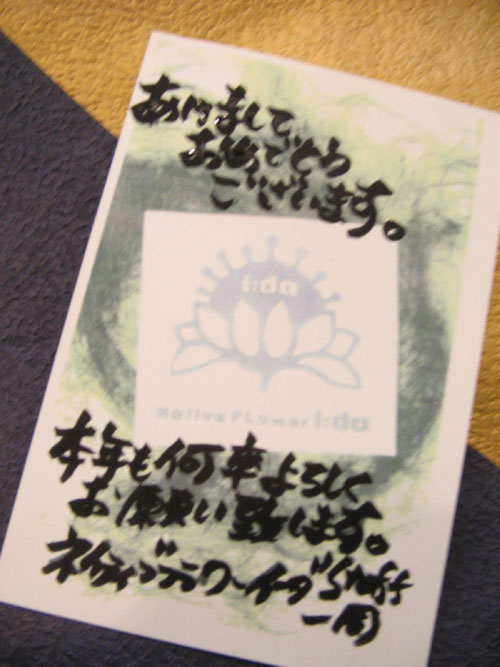 あけまして、
おめでとう
ございます。
i:do
Native Flower i:do
本年も何卒よろしく
お願い致します。
ネイティブフラワーイードゥ Staff
一同